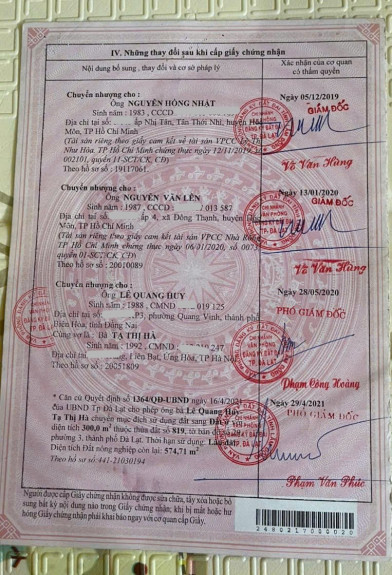 IV. Những thay đổi sau khi cấp giấy chứng nhận
Nội dung bổ sung, thay đổi và cơ sở pháp lý
Xác nhận của cơ quan
có thẩm quyền
Chuyển nhượng cho :
Ông NGUYỄN HỒNG NHẬT
Sinh năm : 1983 , CCCD
Địa chỉ tại số ấp Nhị Tân, Tân Thới Nhì, huyện Hóc
Môn, TP Hồ Chí Minh
(Tài sản riêng theo giấy cam kết về tài sản VPCC
Như Hòa, TP Hồ Chí Minh chứng thực ngày 12/11/2019
002101, quyển 11-SCT/CK, CĐ)
Theo hồ sơ : 19117061
Ngày 05/12/2019
GIÁM ĐỐC
Võ Văn Hùng
Chuyển nhượng cho :
Ông NGUYỄN VĂN LÊN
Sinh năm : 1987 , CCCD 013 587
Địa chỉ tại ấp 4, xã Đông Thạnh, huyện
Môn, TP Hồ Chí Minh
(Tài sản riêng theo giấy cam kết tài sản VPCC Nhà Rồng
TP Hồ Chí Minh chứng thực ngày 06/01/2020, số 0073
quyển 01-SCT/CK, CĐ)
Theo hồ sơ : 20010089
Ngày 13/01/2020
GIÁM ĐỐC
Võ Văn Hùng
Chuyển nhượng cho :
Ông LÊ QUANG HUY
Sinh năm : 1988 , CMND 019 125
Địa chỉ tại số P3, phường Quang Vinh, thành phố
Biên Hòa, tỉnh Đồng Nai
Cùng sử dụng : Bà TẠ THỊ HÀ
Sinh năm : 1992 , CMND 247
Địa chỉ tại Liên Bạt, Ứng Hòa, TP Hà Nội
Theo hồ sơ : 20051809
Ngày 28/05/2020
PHÓ GIÁM ĐỐC
Phạm Công Hoàng
* Căn cứ Quyết định số 1364/QĐ-UBND ngày 16/4/2021
của UBND Tp Đà Lạt cho phép ông bà Lê Quang Huy
Tạ Thị Hà chuyển mục đích sử dụng đất sang Đất ở
diện tích 300,0 m² thuộc thửa đất số 819, tờ bản đồ
phường 3, thành phố Đà Lạt. Thời hạn sử dụng: Lâu dài.
Diện tích Đất nông nghiệp còn lại: 574,71 m²
Theo hồ sơ: 441-21030194
Ngày 29/4/2021
PHÓ GIÁM ĐỐC
Phạm Văn Phúc
Người được cấp Giấy chứng nhận không được sửa chữa, tẩy xóa hoặc bổ
sung bất kỳ nội dung nào trong Giấy chứng nhận; khi bị mất hoặc hư
hỏng Giấy chứng nhận phải khai báo ngay với cơ quan cấp Giấy.